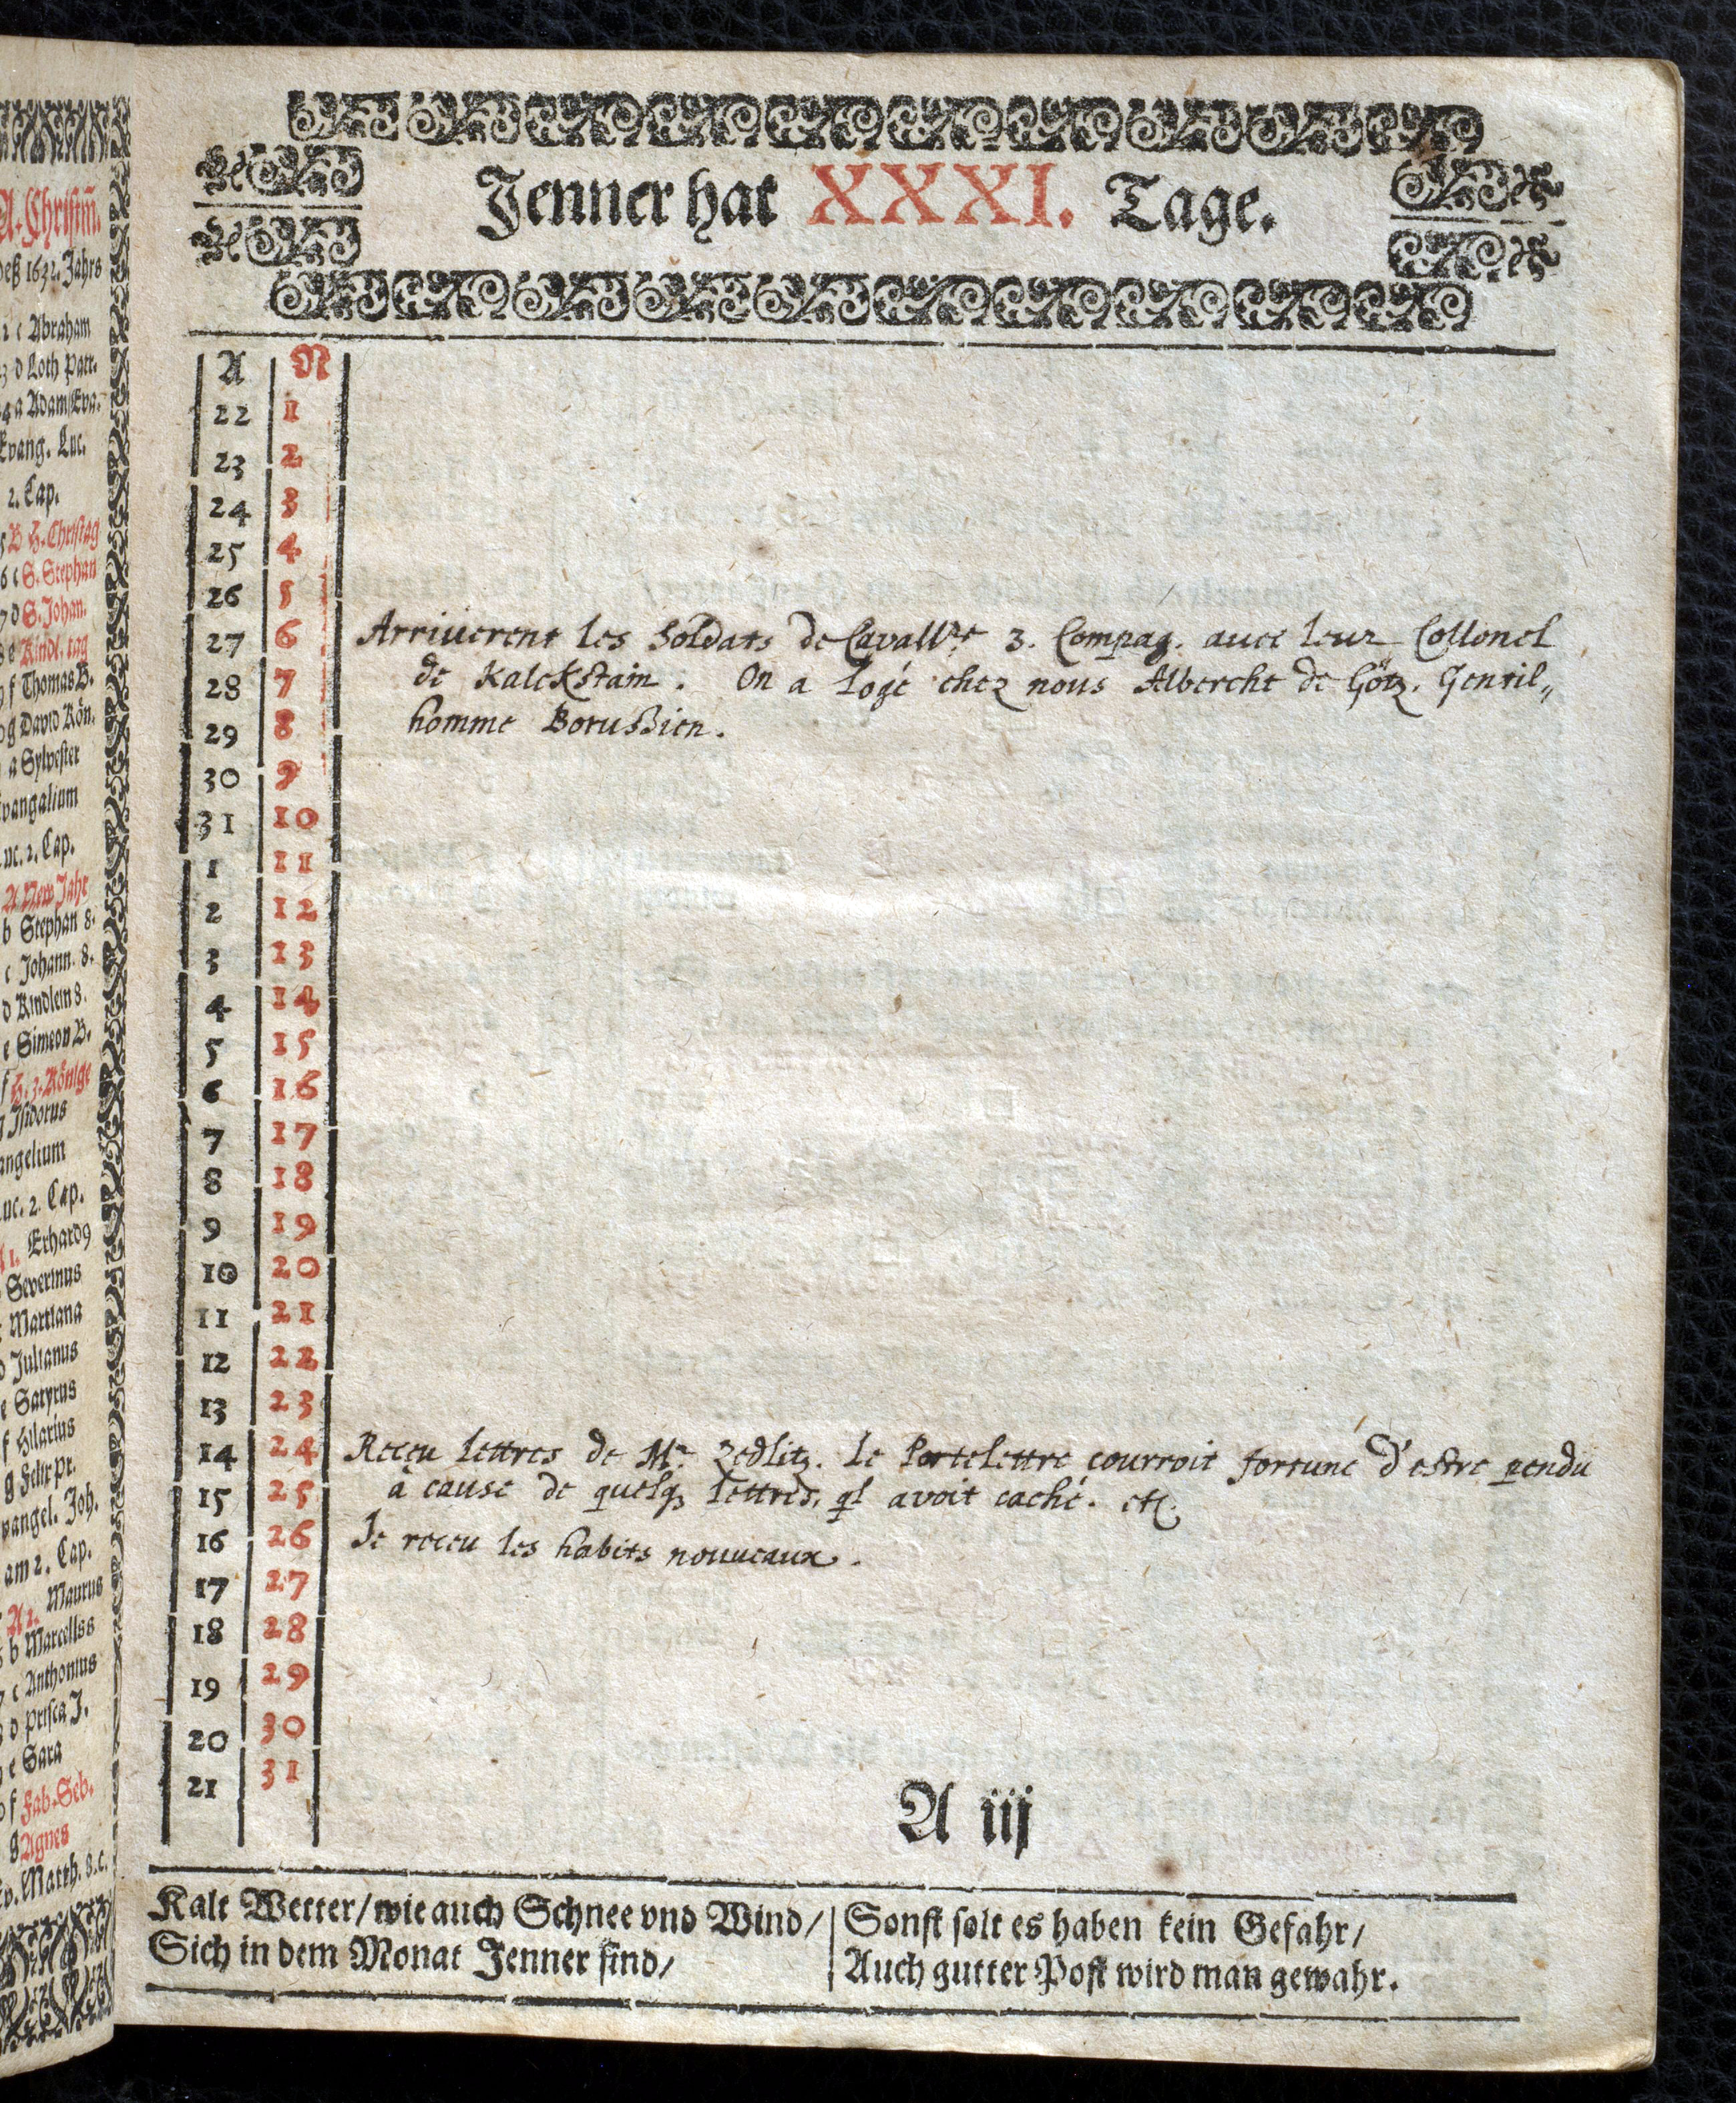 A. Christm̃
deß 1632. Jahrs
2 c Abraham
23 d Loth Patr.
24 a Adam/Eva.
Evang. Luc.
2. Cap.
5 B H. Christag
6 c S. Stephan
7 d S. Johan.
8 e Kindl. tag
9 f Thomas B.
0 g David Kön.
a Sylvester
Evangalium
Luc. 2. Cap.
A New Jahr
b Stephan 8.
c Johann. 8.
d Kindlein 8.
e Simeon B.
f H. 3. Könige
g Isidorus
angelium
uc. 2. Cap.
A 1. Erhard9
Severinus
Martiana
d Julianus
e Satyrus
f Hilarius
g Felix pr.
vangel. Joh.
am 2. Cap.
A 2. Maurus
6 b Marcellss
7 c Anthonius
8 d Prisca J.
e Sara
0 f Fab. Seb.
g Agnes
Ev. Matth. 8. c.
Jenner hat XXXI. Tage.
A N
22 1
23 2
24 3
25 4
26 5
27 6 Arriuerent les Soldats de Cavallre 3. Compag. auec leur Collonel
28 7 de Kalckstain. On a logé chez nous Alberche de Götz. Gentil„
29 8 homme Borußien.
30 9
31 10
1 11
2 12
3 13
4 14
5 15
6 16
7 17
8 18
9 19
10 20
11 21
12 22
13 23
14 24 Reçeu lettres de Mr Zedlitz. Le Portelettre courroit fortune d'estre pendu
15 25 à cause de quelq3 lettres, ql avoit caché. etc.
16 26 Je receu les habits nouueaux.
17 27
18 28
19 29
20 30
21 31
A iij
Kalt Wetter/ wie auch Schnee vnd Wind/
Sich in dem Monat Jenner find/
Sonst solt es haben kein Gefahr/
Auch gutter Post wird man gewahr.